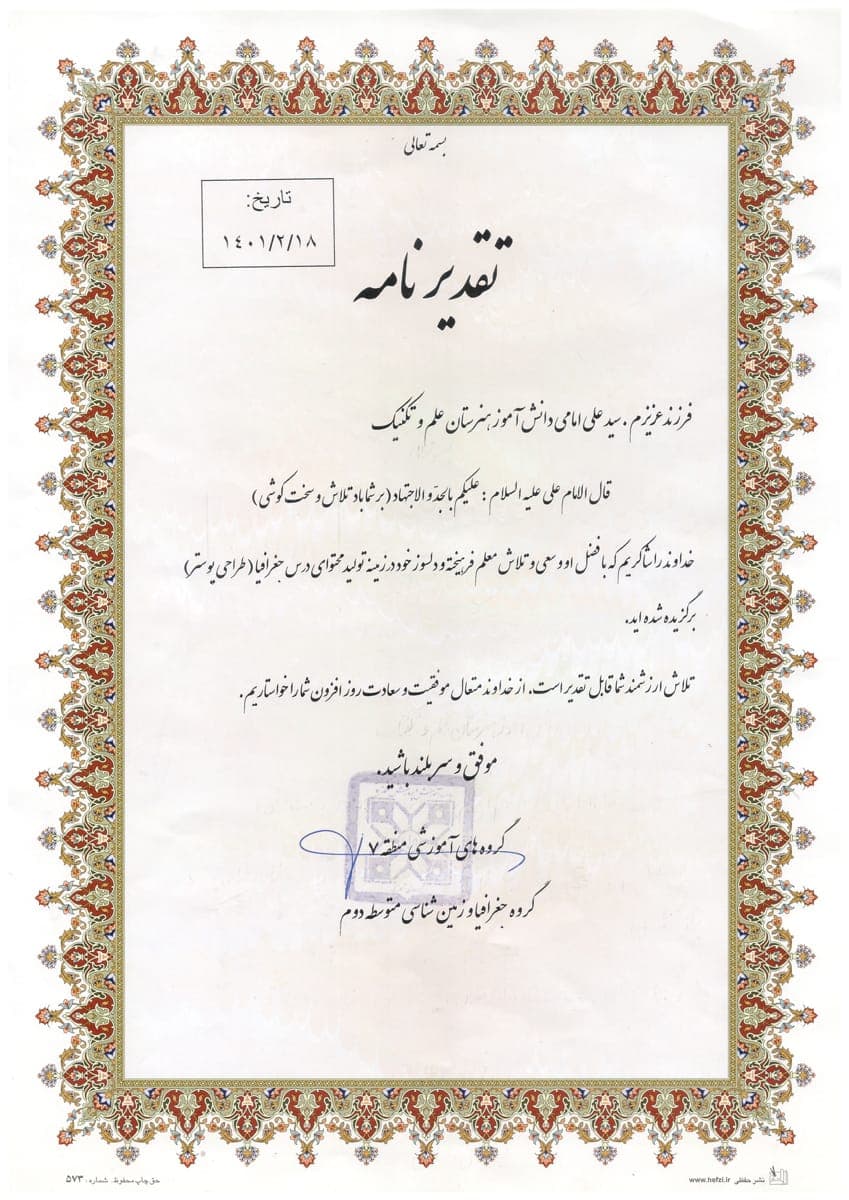 بسمه تعالی
تاریخ:
۱٤۰۱/۲/۱۸
تقدیر نامه
فرزند عزیزم . سید علی امامی دانش آموز هنرستان علم و تکنیک
قال الامام علی علیه السلام : علیکم بالجدّ و الاجتهاد (بر شما باد تلاش و سخت کوشی)
خداوند را شاکریم که با فضل او و سعی و تلاش معلم فرهیخته و دلسوز خود در زمینه تولید محتوای درس جغرافیا (طراحی پوستر)
برگزیده شده اید.
تلاش ارزشمند شما قابل تقدیر است. از خداوند متعال موفقیت و سعادت روز افزون شما را خواستاریم.
موفق و سر بلند باشید.
گروه های آموزشی منطقه ۷
گروه جغرافیا و زمین شناسی متوسطه دوم
حق چاپ محفوظ. شماره: ۵۷۳
نشر حفظی www.hefzi.ir